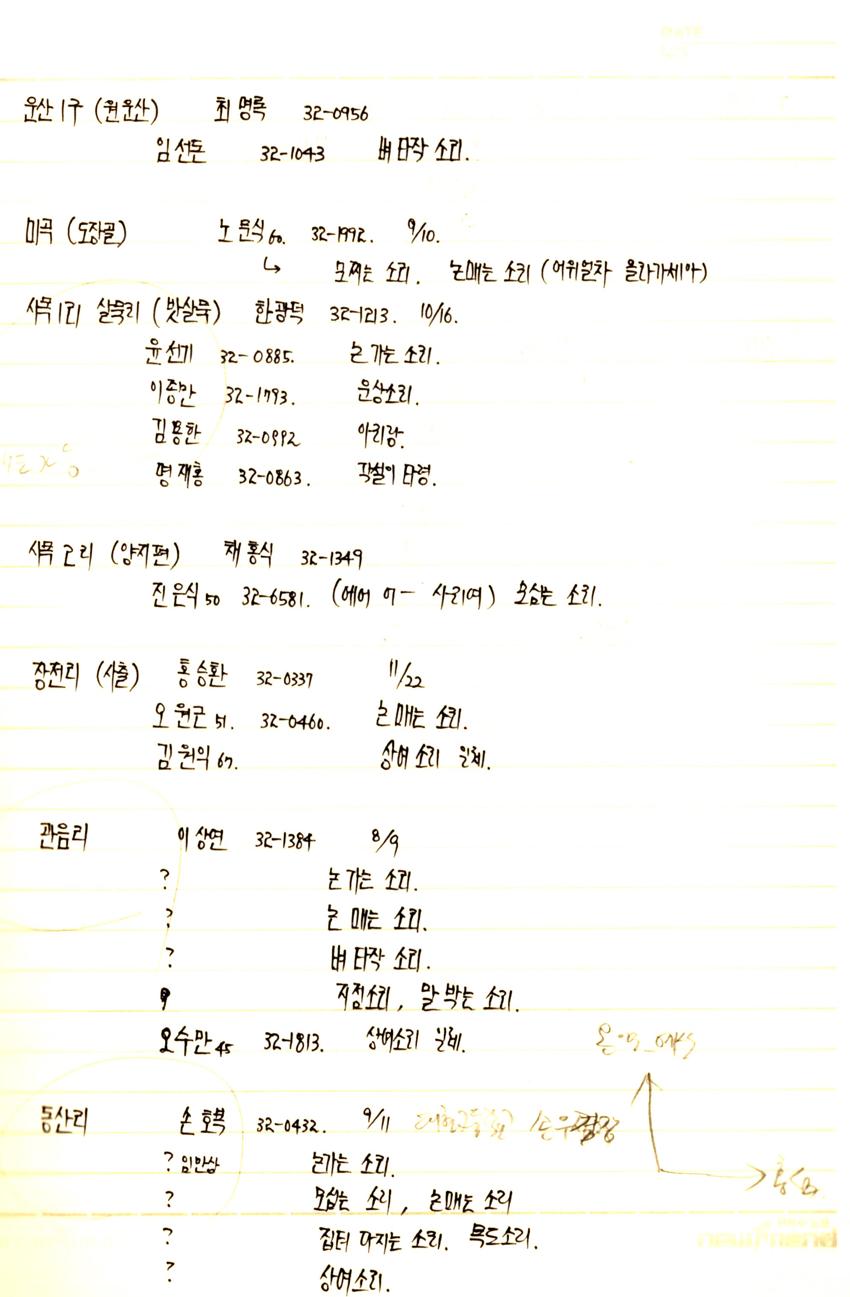 운산1구 (원운산) 최명록 32-0956
임선돈 32-1043 벼 타작 소리.
미곡 (도장골) 노문식 60. 32-1992. 9/10.
↳ 모찌는 소리. 논매는 소리 (어위얼차 올라가세아)
사목1리 살목리 (밧살목) 한광덕 32-1213. 10/16.
윤선기 32-0885. 논가는 소리.
이종만 32-1793. 운상소리.
김용한 32-0992 아리랑.
명재홍 32-0863. 각설이 타령.
사목2리 (양지편) 채홍식 32-1349
진은식 50 32-6581. (에어 어- 사리여) 모심는 소리.
장전리 (사출) 홍승환 32-0337 11/22
오원근 51. 32-0460. 논매는 소리.
김원익 67. 상여소리 일체.
관음리 이상연 32-1384 8/9
? 논가는 소리.
? 논매는 소리.
? 벼 타작 소리.
? 지점소리, 말박는 소리.
오수만 45 32-1813. 상여소리 일체.
동산리 손호복 32-0432. 9/11
? 임만상 논가는 소리.
? 모심는 소리, 논매는 소리
? 집터 다지는 소리. 목도소리.
? 상여소리.